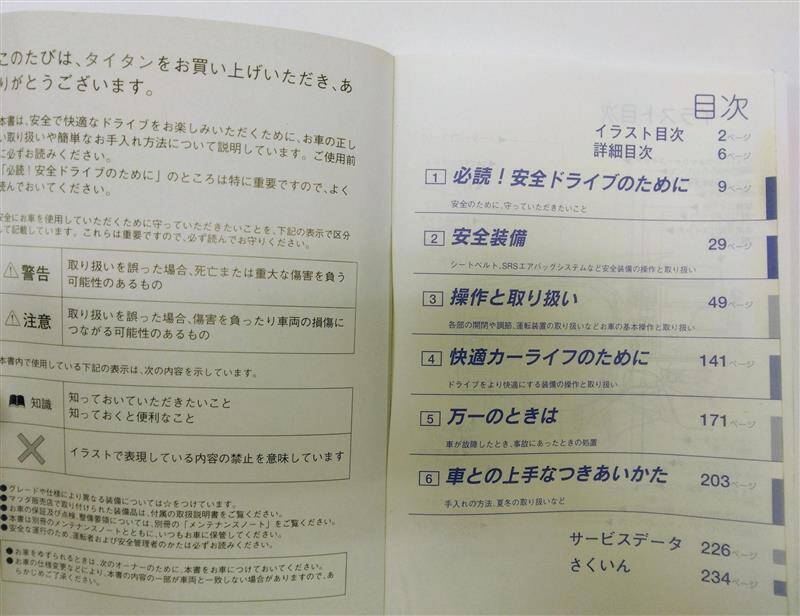 このたびは、タイタンをお買い上げいただき、あ
りがとうございます。
本書は、安全で快適なドライブをお楽しみいただくために、お車の正し
い取り扱いや簡単なお手入れ方法について説明しています。ご使用前
に必ずお読みください。
「必読！安全ドライブのために」のところは特に重要ですので、よく
読んでおいてください。
安全にお車を使用していただくために守っていただきたいことを、下記の表示で区分
して記載しています。これらは重要ですので、必ず読んでお守りください。
警告
取り扱いを誤った場合、死亡または重大な傷害を負う
可能性のあるもの
注意
取り扱いを誤った場合、傷害を負ったり車両の損傷に
つながる可能性のあるもの
本書内で使用している下記の表示は、次の内容を示しています。
知識
知っておいていただきたいこと
知っておくと便利なこと
イラストで表現している内容の禁止を意味しています
●グレードや仕様により異なる装備については☆をつけています。
●マツダ販売店で取り付けられた装備品は、付属の取扱説明書をご覧ください。
●お車の保証及び点検、整備要領については、別冊の「メンテナンスノート」をご覧ください。
●本書は別冊のメンテナンスノートとともに、いつもお車に保管してください。
●安全な運行のため、運転者および安全管理者のかたは必ずお読みください。
●お車をゆずられるときは、次のオーナーのために、本書をお車につけておいてください。
●お車の仕様変更などにより、本書の内容の一部が車両と一致しない場合がありますので、あ
らかじめご了承ください。
目次
イラスト目次 2ページ
詳細目次 6ページ
1 必読！安全ドライブのために 9ページ
安全のために、守っていただきたいこと
2 安全装備 29ページ
シートベルト、SRSエアバッグシステムなど安全装備の操作と取り扱い
3 操作と取り扱い 49ページ
各部の開閉や調節、運転装置の取り扱いなどお車の基本操作と取り扱い
4 快適カーライフのために 141ページ
ドライブをより快適にする装備の操作と取り扱い
5 万一のときは 171ページ
車が故障したとき、事故にあったときの処置
6 車との上手なつきあいかた 203ページ
手入れの方法、夏冬の取り扱いなど
サービスデータ 226ページ
さくいん 234ページ